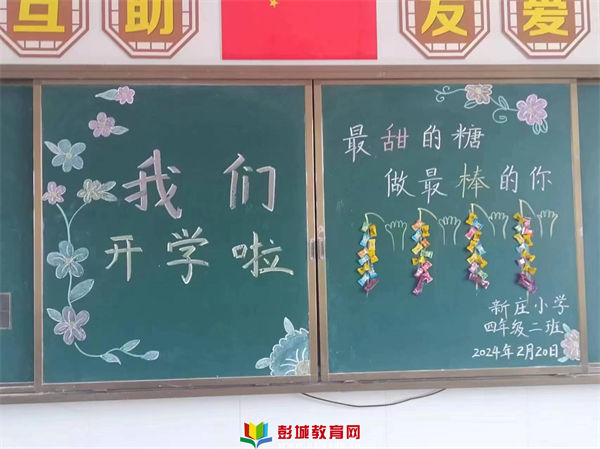 互助
友爱
我们
开学啦
最甜的糖
做最棒的你
新庄小学
四年级二班
2024年2月20日
彭城教育网